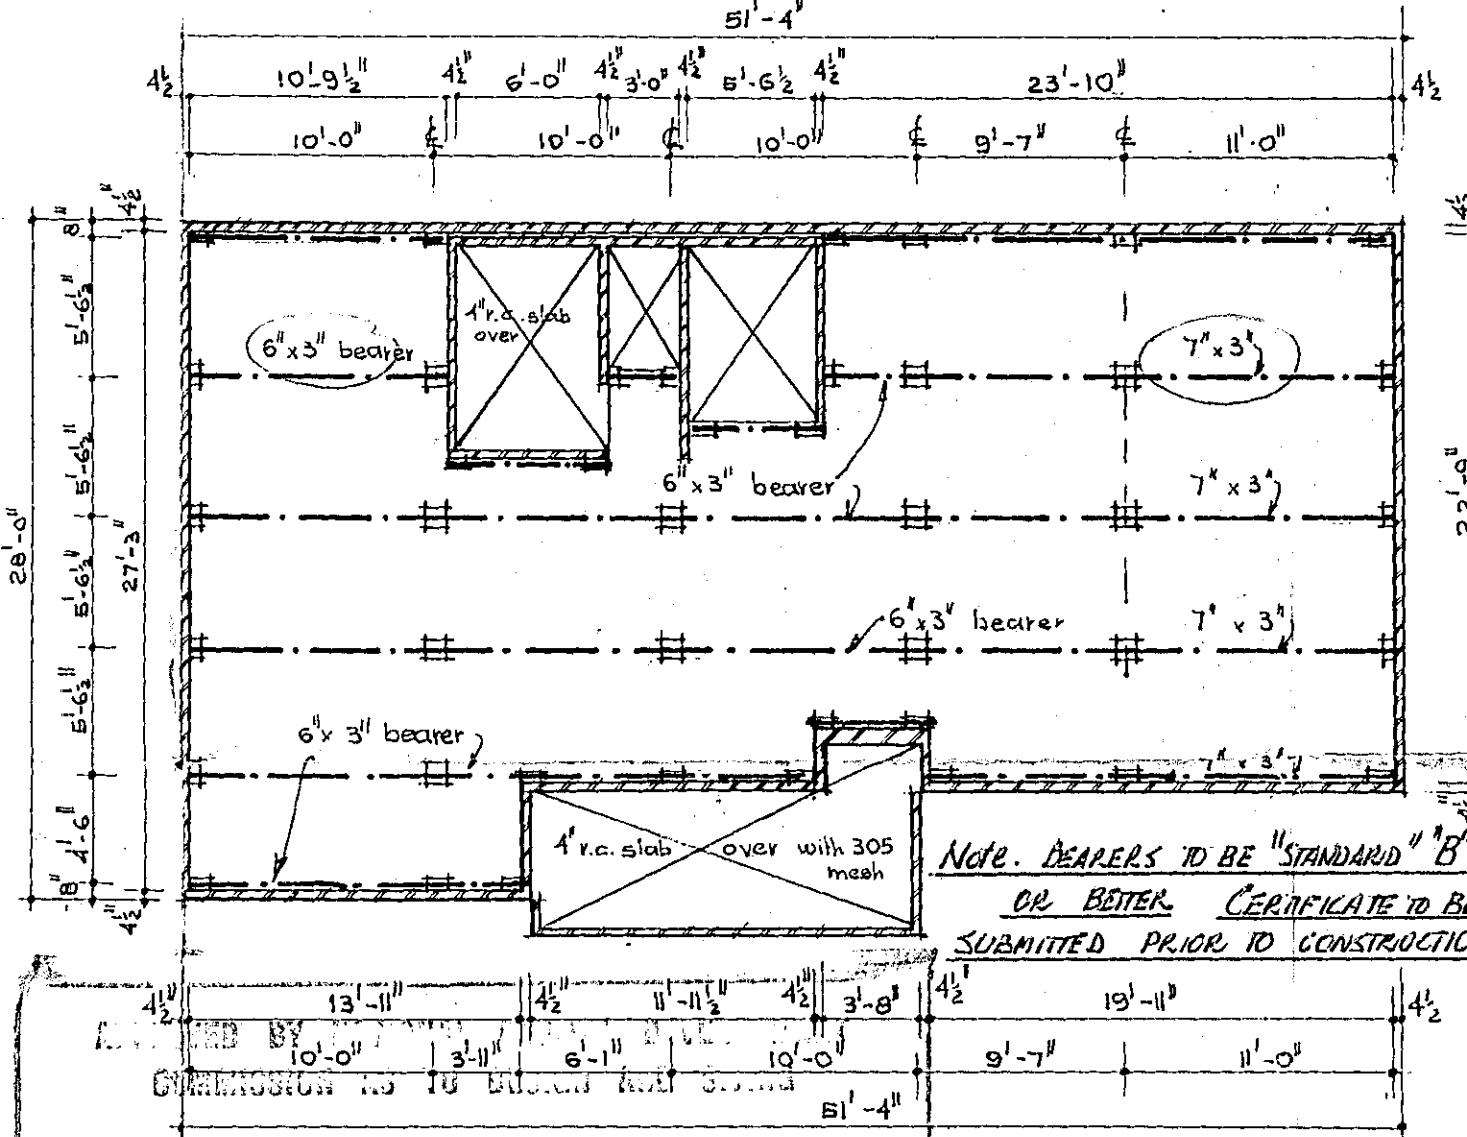 51'-4"
4½ 10'-9½" 4½" 6'-0" 4½" 3'-0" 4½" 5'-6½ 4½" 23'-10" 4½
10'-0" ℄ 10'-0" ℄ 10'-0" ℄ 9'-7" ℄ 11'-0"
4½"
8"
5'-6½"
5'-6½"
5'-6½"
5'-6½"
4'-6"
8"
28'-0"
27'-3"
4½"
4" r.c. slab
over
6"x 3" bearer
7" x 3"
6" x 3" bearer
7" x 3"
6" x 3" bearer
7" x 3"
6"x 3" bearer
7" x 3"
4" r.c. slab over with 305
mesh
Note. BEARERS TO BE "STANDARD" "B"
OR BETTER CERTIFICATE TO
SUBMITTED PRIOR TO
4½" 13'-11" 4½" 11'-11½" 4½" 3'-8" 4½" 19'-11" 4½
BY
10'-0" 3'-11" 6'-1" 10'-0" 9'-7" 11'-0"
COMMISSION AS TO DESIGN AND
51'-4"